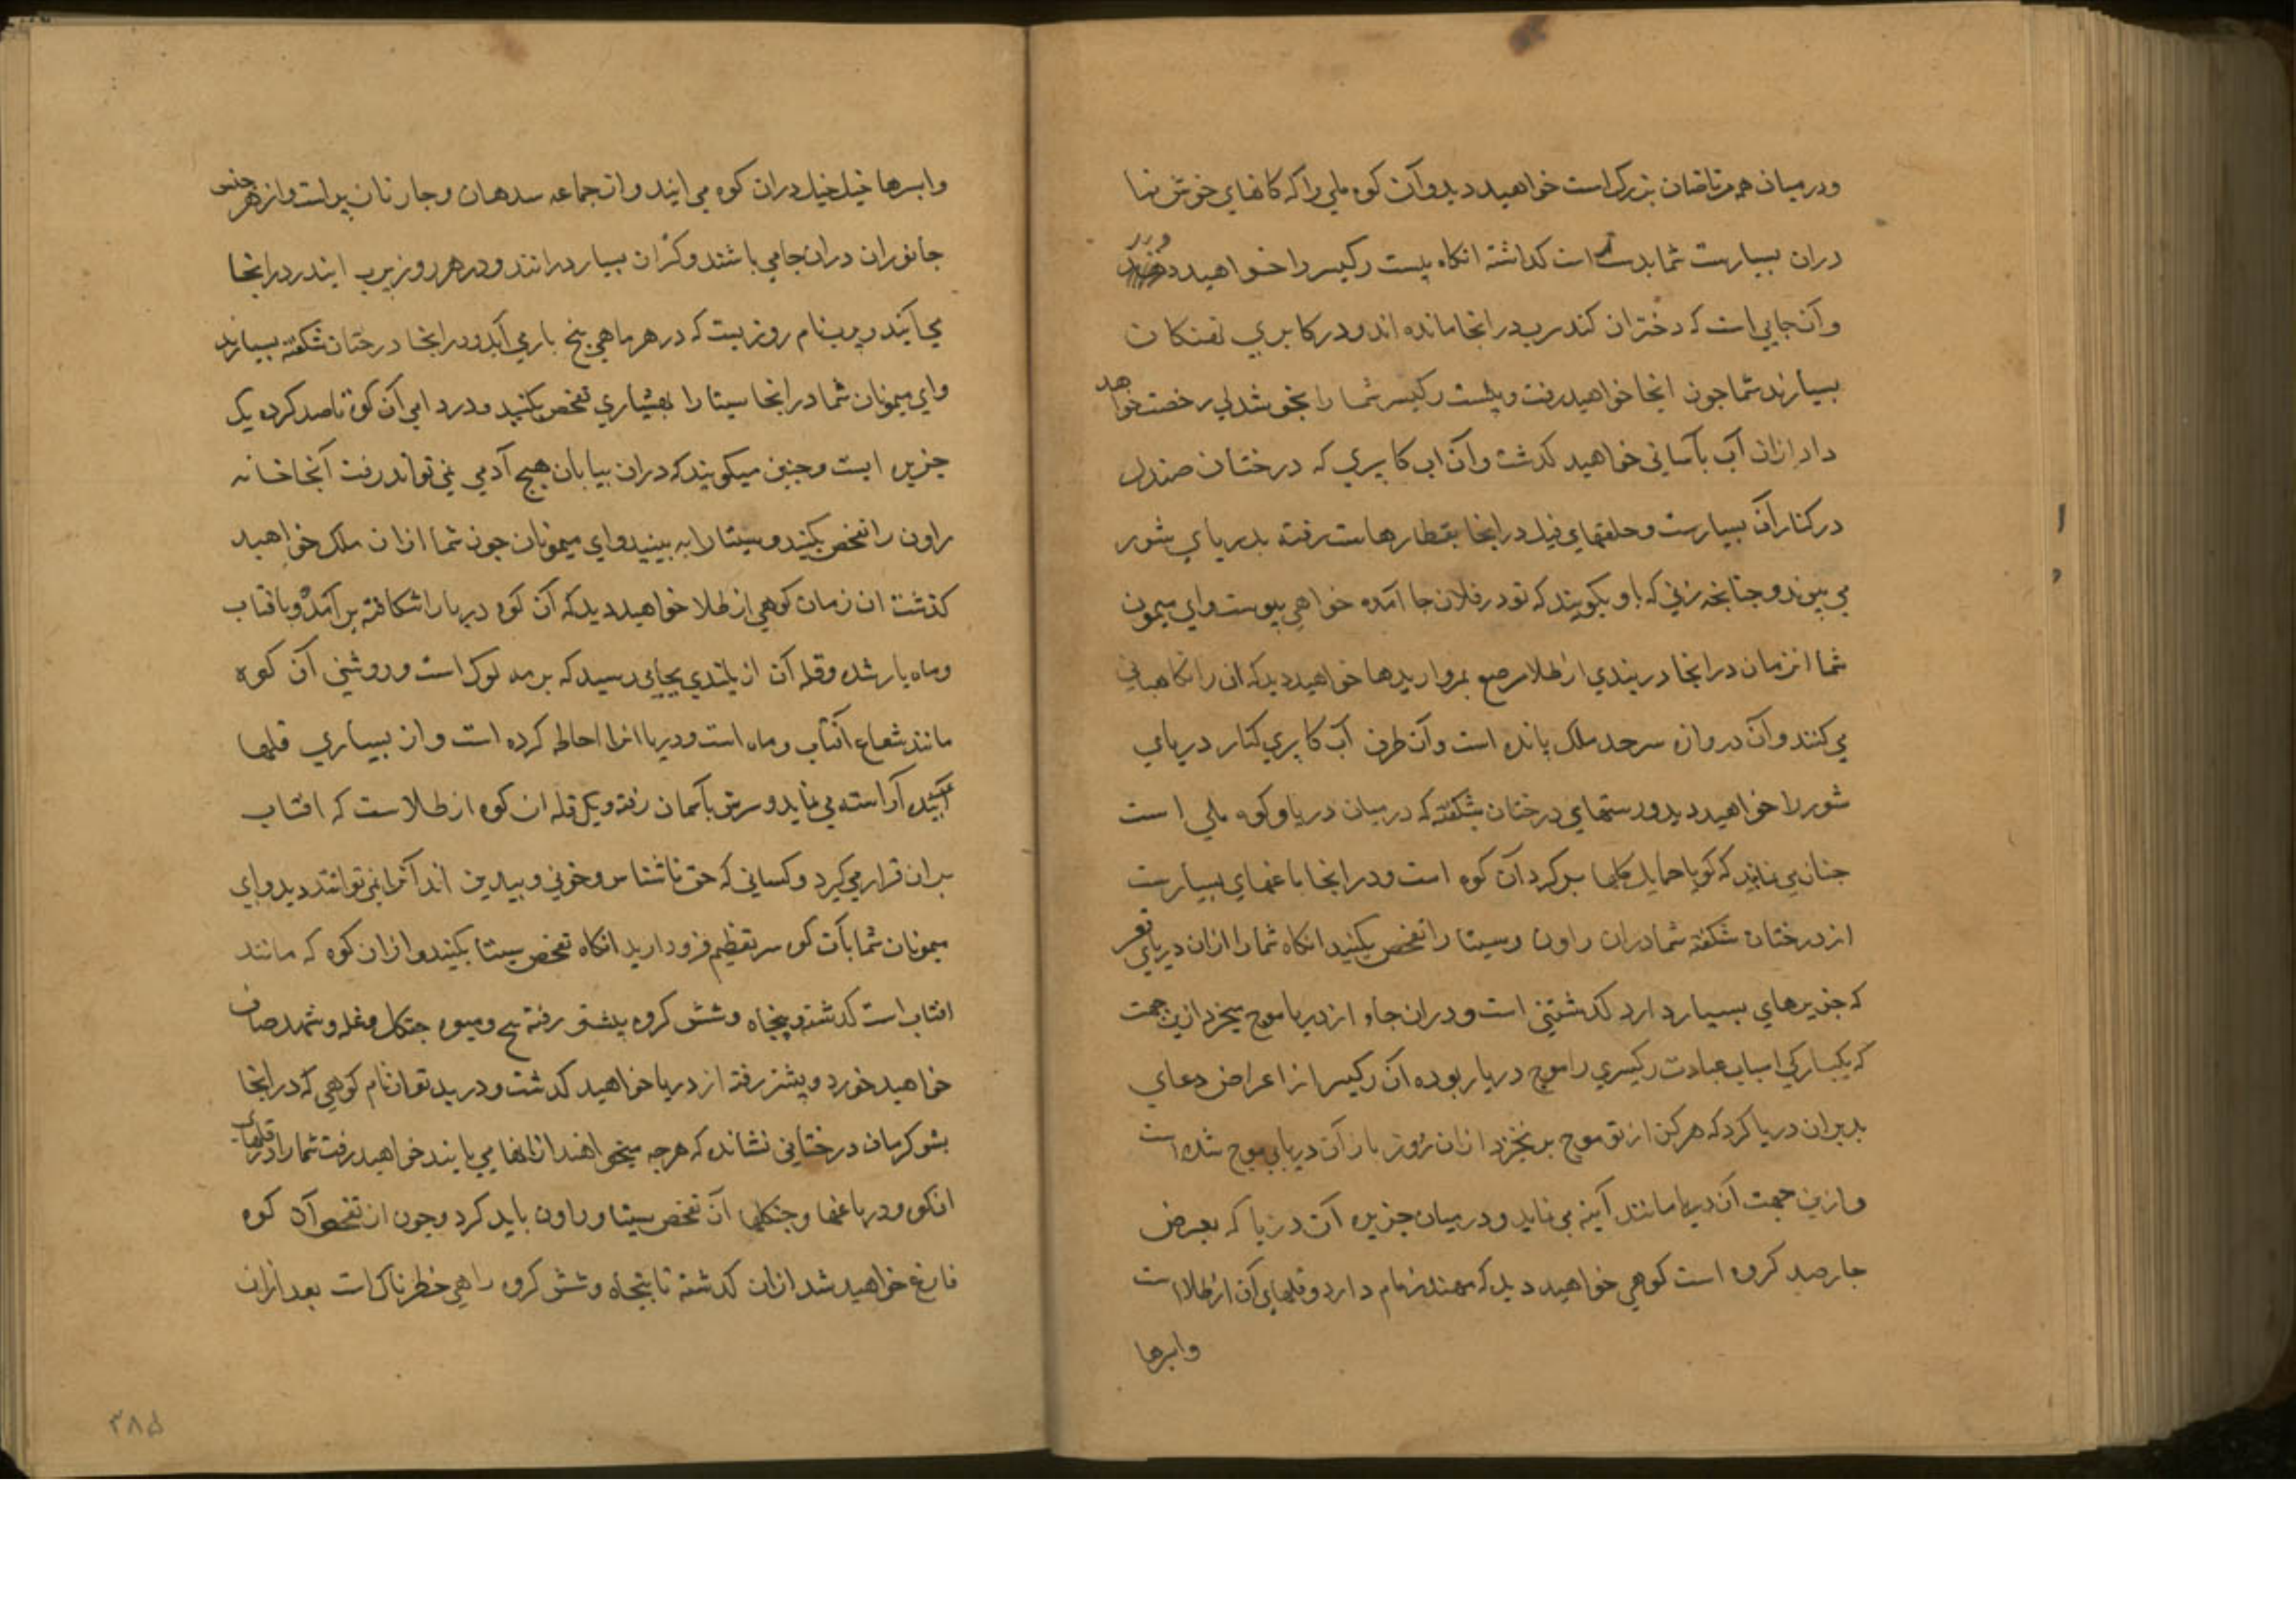 ودر میان همه مرتاضان بزرک است خواهید دید وآن کوه ملی را که کانهای خوش نما
دران بسیارست شما بدست راست کذاشته انکاه پلست رکیسر را خواهید دید
وآن جایی است که دختران کندرب درانجا مانده اند ودر کابری نهنکان
بسیارند شما چون انجا خواهید رفت وپلست رکیسر شما را بخوشدلی رخصت خواهد
داد ازان آب بآسانی خواهید کذشت وآن اب کابیری که درختان صندل
در کنار آن بسیارست وحلقهای فیل درانجا بقطارهاست رفته بدریای شور
می پیوندد چنانچه زنی که باو بکویند که تو در فلان جا آمده خواهی پیوست وای میمونان
شما انزمان درانجا دربندی از طلا مرصع بمرواریدها خواهید دید که ان را نکاهبانی
می کنند وآن دروازه سرحد ملک پانده است وآن طرف آب کابری کنار دریای
شور را خواهید دید ورستهای درختان شکفته که در میان دریا وکوه ملی است
چنان می نماید که کویا حمایل کلها بر کرد آن کوه است ودرانجا باغهای بسیارست
از درختان شکفته شما دران راون وسیتا را تفحص بکنید انکاه شما را ازان دریای
که جزیرهای بسیار دارد کذشتنی است ودران جا از دریا موج نمیخیزد ازین جهت
که یکبارکی اسباب عبادت رکیسری را موج دریا ربوده آن رکیسر از اعراض دعای
بد بران دریا کرد که هرکز از تو موج برنخیزد ازان روز باز آن دریا بی موج شده است
وازین جهت آن دریا مانند آینه می نماید ودر میان جزیره آن دریا که بعرض
چارصد کروه است کوهی خواهید دید که مهندر نام دارد وقلهای آن از طلا است
وابرها
وابرها خیل خیل دران کوه می ایند واز جماعه سدهان وچارنان پر است واز هر جنس
جانوران دران جا می باشند وکران بسیار درانند ودر هر روز پرب ایندر درانجا
می آیند وپرب نام روزیست که در هر ماهی پنج باری آید ودرانجا درختان شکفته بسیارند
وای میمونان شما درانجا سیتا را بهشیاری تفحص بکنید ودر دامن آن کوه تا صد کروه یک
جزیره ایست وچنین میکویند که دران بیابان هیچ آدمی نمی تواند رفت آنجا خانه
راون را تفحص بکنید وسیتا را به بینید وای میمونان چون شما ازان ملک خواهید
کذشت ان زمان کوهی از طلا خواهید دید که آن کوه دریا را شکافته بر آمده وبافتاب
وماه یار شده وقله آن از بلندی بجایی رسید که برمه لوک است وروشنی آن کوه
مانند شعاع آفتاب وماه است ودریا انرا احاطه کرده است واز بسیاری قلهها
آراسته می نماید وسرش بآسمان رفته ویک قله ان کوه از طلاست که افتاب
بران قرار می کیرد وکسانی که حق ناشناس وخونی وبیدین اند آنرا نمی توانند دید وای
میمونان شما بآن کوه سر تعظیم فرود ارید انکاه تفحص سیتا بکنید وازان کوه که مانند
افتاب است کذشته وپنجاه وشش کروه پیشتر رفته بیخ ومیوه جنکل وغله وشهد صاف
خواهید خورد وپیشتر رفته از دریا خواهید کذشت ودر بدتوان نام کوهی که درانجا
بشوکرمان درختانی نشانده که هرچه میخواهند ازانها می یابند خواهید رفت شما را در قلهای
انکوه ودر باغها وجنکلها آن تفحص سیتا وراون باید کرد وچون از تفحص آن کوه
فارغ خواهید شد ازان کذشته تا پنجاه وشش کروه راهی خطرناک است بعد ازان
۳۸۵